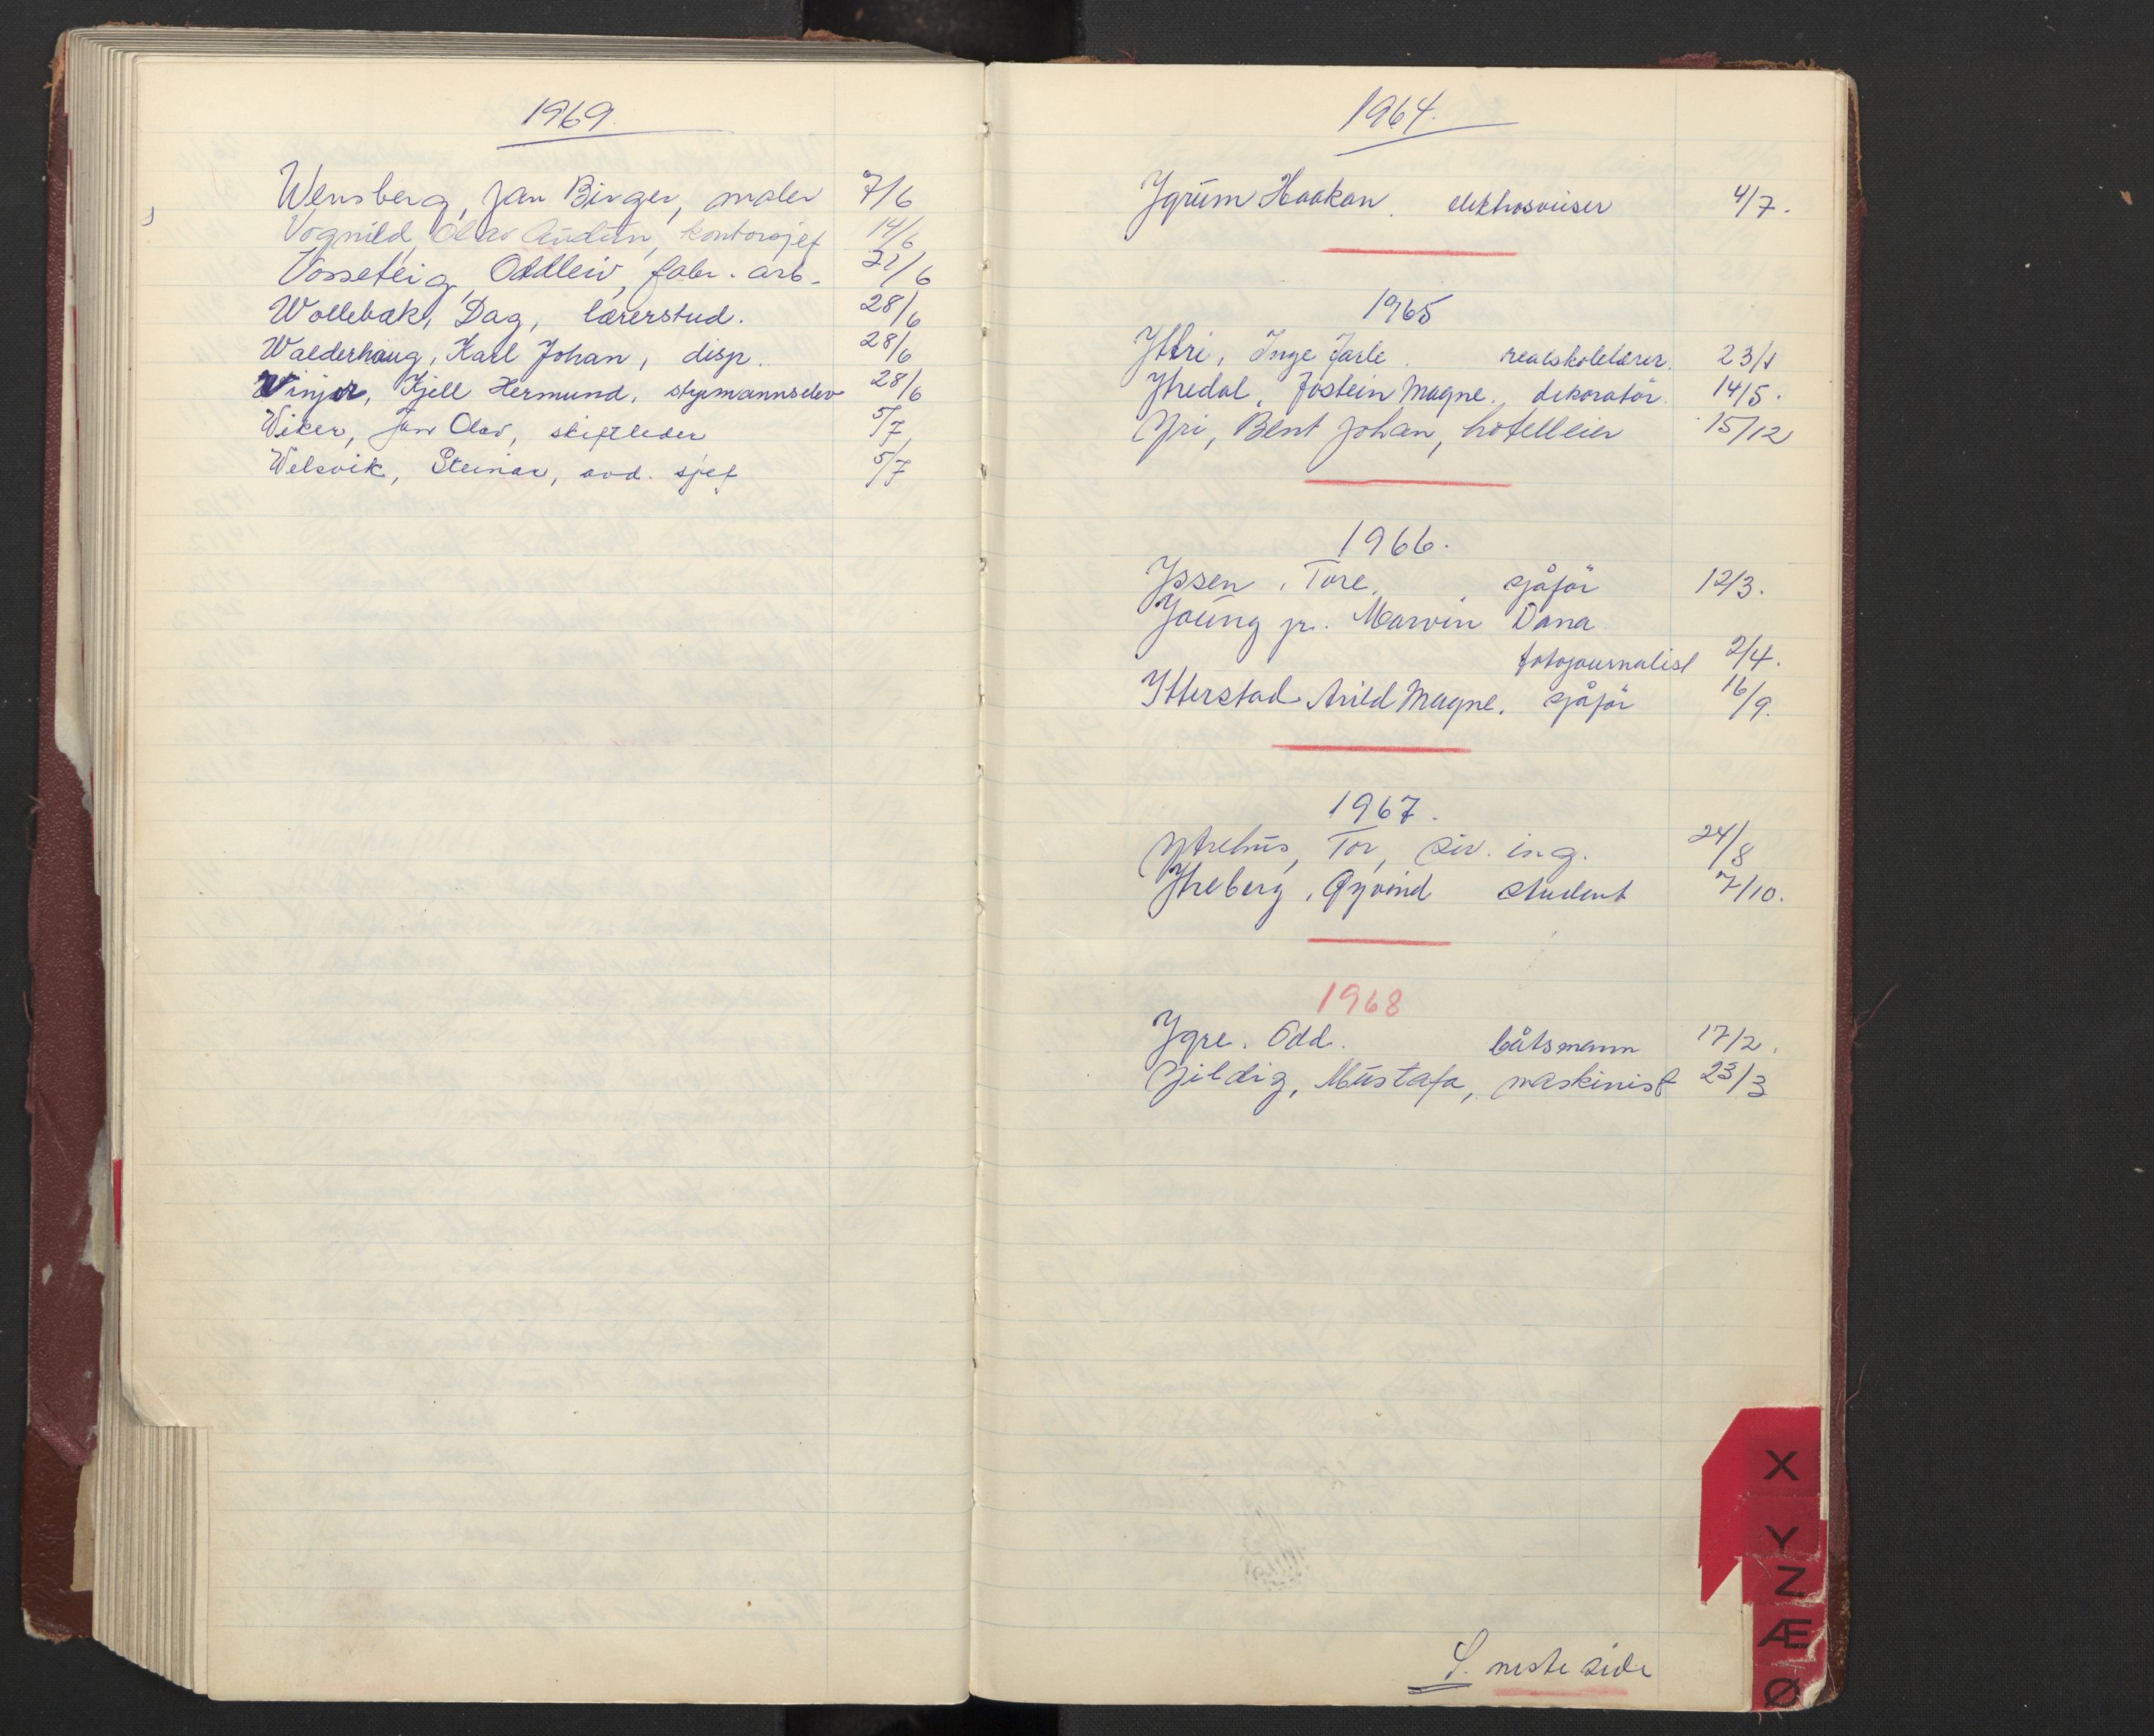 1969.
Wensberg, Jan Birger, maler 7/6
Vognild, Olav Audun, kontorsjef 14/6
Vosseteig, Oddleiv, fabr. arb. 21/6
Wollebæk, Dag, lærerstud. 28/6
Walderhaug, Karl Johan, disp. 28/6
Vinjer, Kjell Hermund, styrmannselev 28/6
Wiker, Jan Olav, skiftleder 5/7
Welsvik, Steinar, avd. sjef 5/7
1964.
Ygrum Haakon. elektrosveiser 4/7.
1965
Yttri, Inge Jarle. realskolelærer. 23/1
Ytredal, Jostein Magne. dekoratör 14/5.
Yri, Bent Johan, hotelleier 15/12
1966.
Yssen, Tore. sjåför 12/3.
Young jr. Marvin Dana
fotojournalist 2/4.
Ytterstad Arild Magne. sjåför 16/9.
1967.
Ytrehus, Tor, siv. ing. 24/8
Ytreberg, Øyvind student 7/10.
1968
Ygre. Odd. båtsmann 17/2.
Yildig, Mustafa, maskinist 23/3
S. neste side
X
Y
Z
Æ
Ø